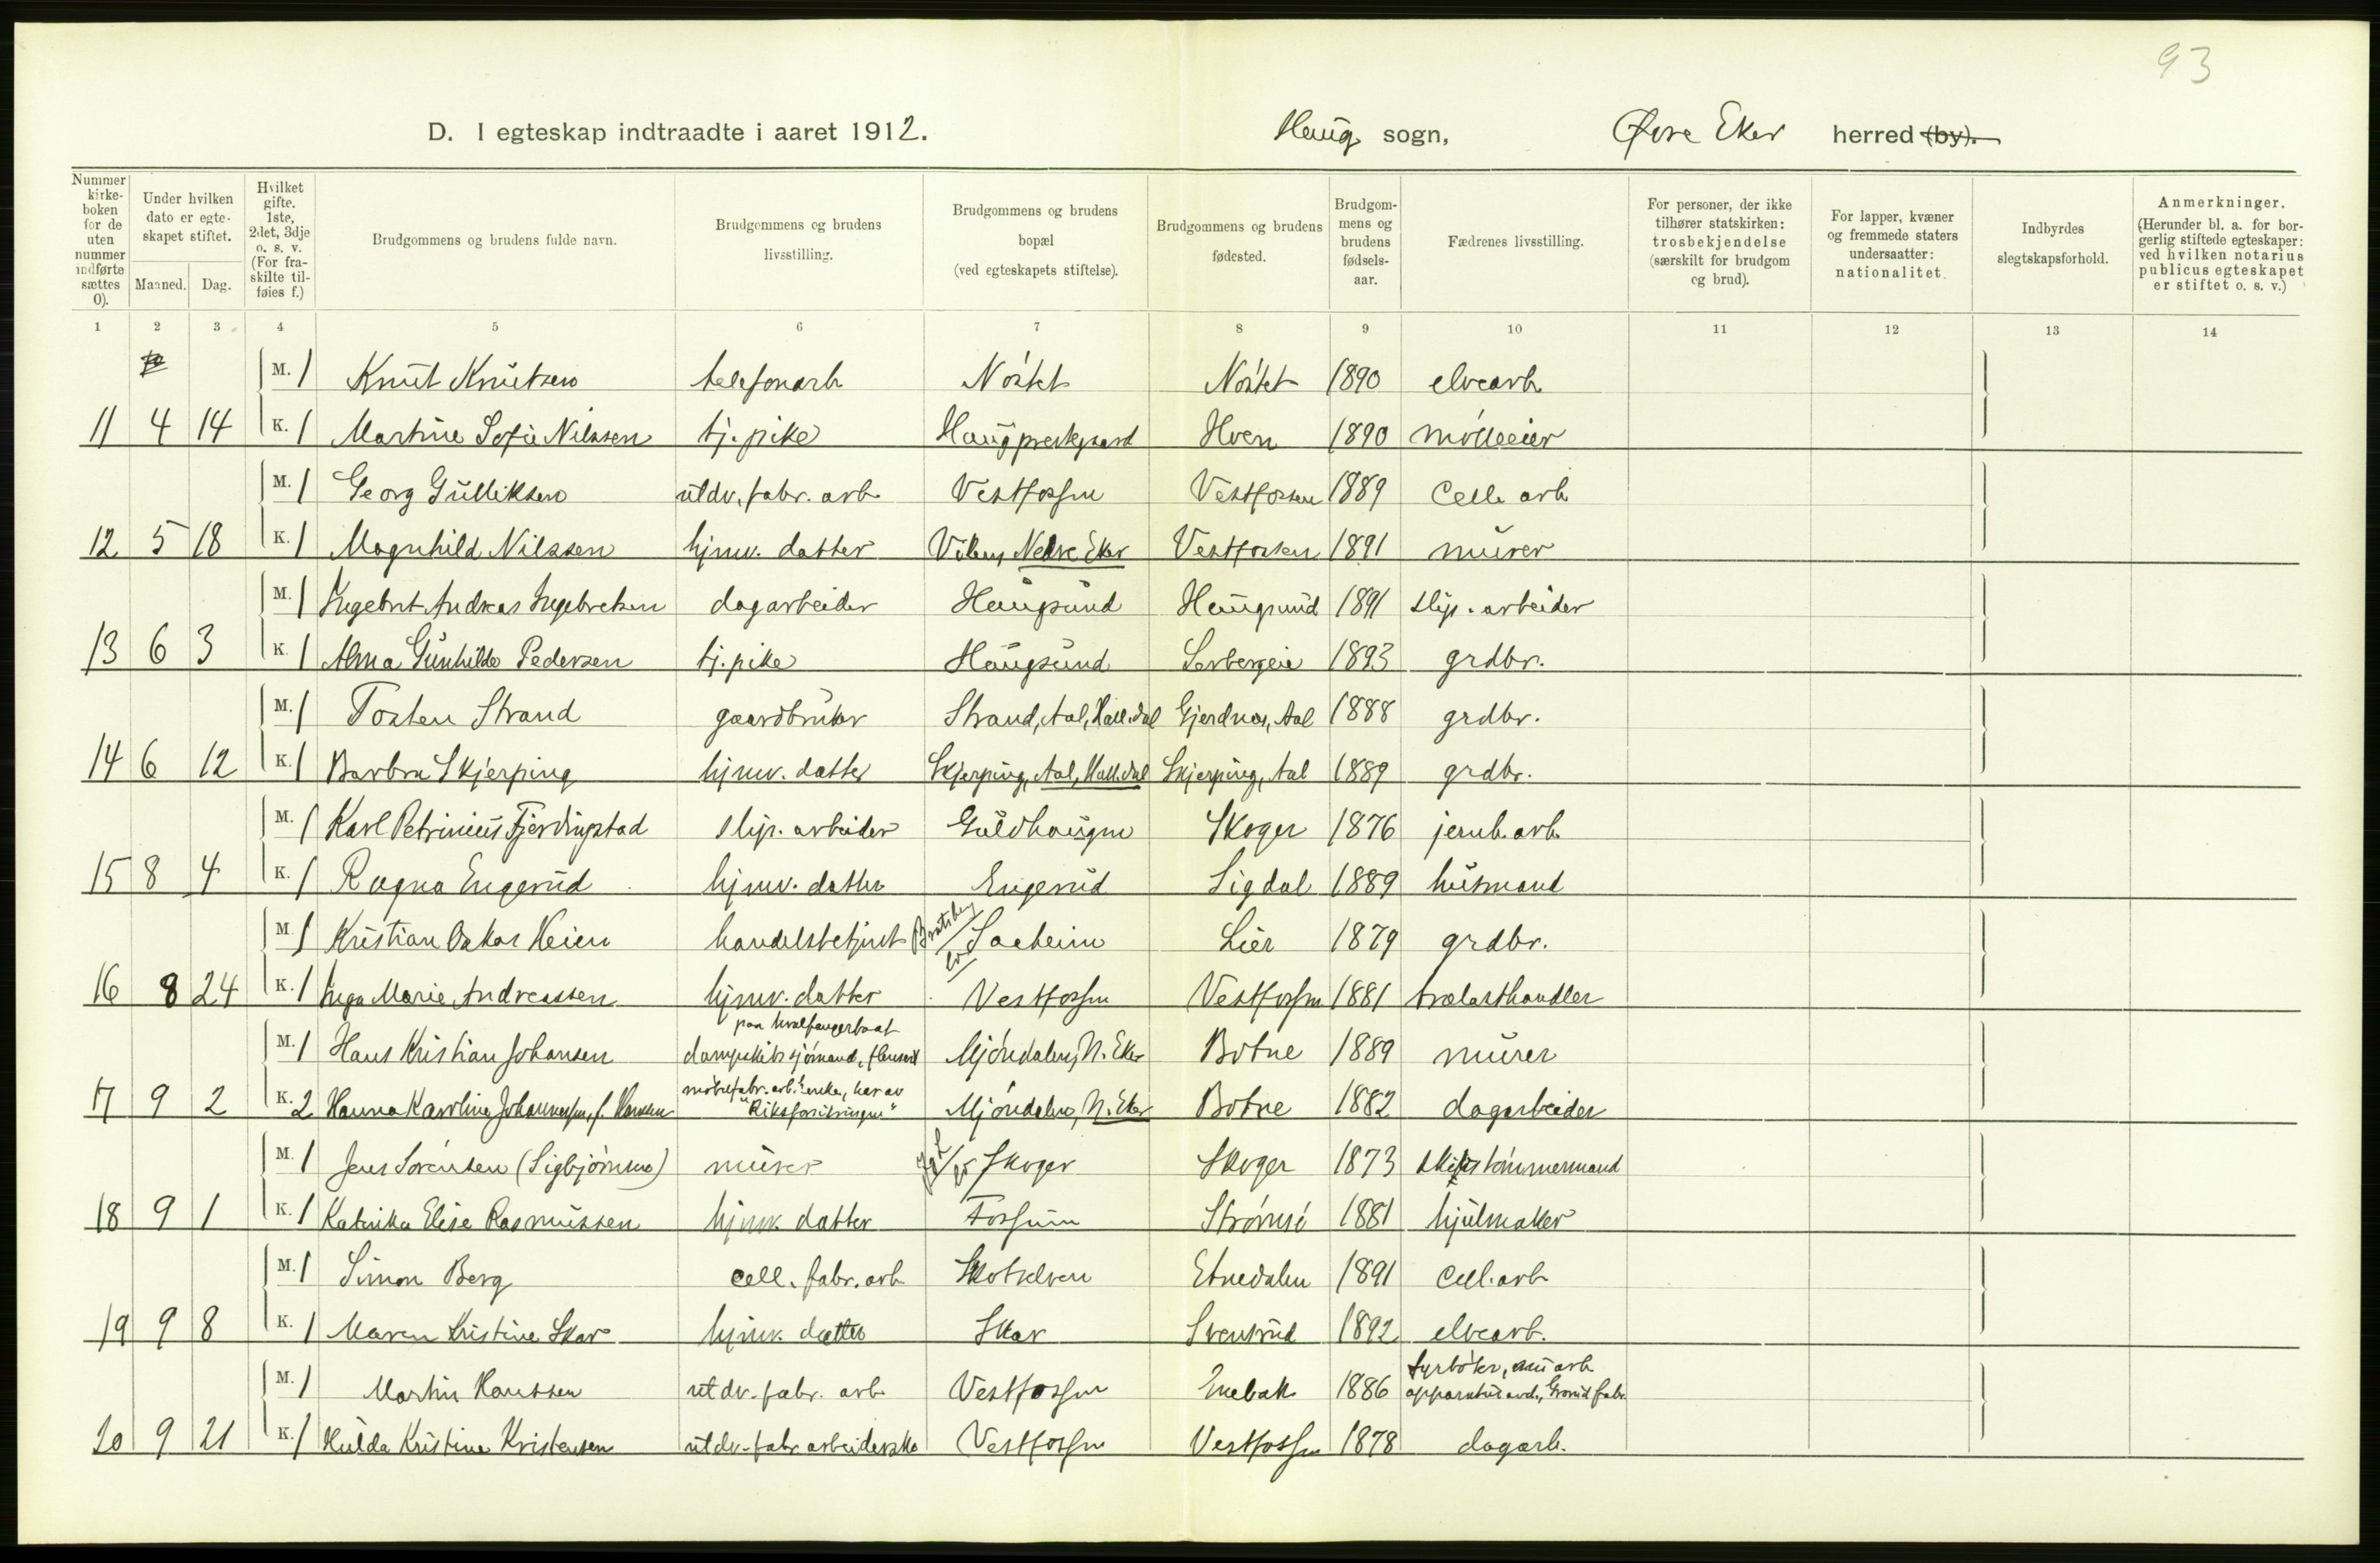 93
D. I egteskap indtraadte i aaret 1912. Haug sogn, Øvre Eker herred (by).
Nummer kirkeboken for de uten nummer indførte sættes 0).
Under hvilken dato er egteskapet stiftet.
Maaned. Dag.
Hvilket gifte. 1ste, 2det, 3dje o. s. v. (For fraskilte tilføies f.)
Brudgommens og brudens fulde navn.
Brudgommens og brudens livsstilling.
Brudgommens og brudens bopæl (ved egteskapets stiftelse).
Brudgommens og brudens fødested.
Brudgommens og brudens fødselsaar.
Fædrenes livsstilling.
For personer, der ikke tilhører statskirken: trosbekjendelse (særskilt for brudgom og brud).
For lapper, kvæner og fremmede staters undersaatter: nationalitet.
Indbyrdes slegtskapsforhold.
Anmerkninger. (Herunder bl. a. for borgerlig stiftede egteskaper: ved hvilken notarius publicus egteskapet er stiftet o. s. v.)
1 2 3 4 5 6 7 8 9 10 11 12 13 14
M. 1 Knut Knutsen telefonarb Nöstet Nöstet 1890 elvearb
11 4 14 K. 1 Martine Sofie Nilssen tj. pike Haug prestegaard Hven 1890 mölleeier
M. 1 Georg Gulliksen utdv. fabr. arb Vestfossen Vestfossen 1889 Cell. arb
12 5 18 K. 1 Magnhild Nilssen hjmv. datter Nedre Eker Vestfossen 1891 murer
M. 1 Ingebret Andreas Ingebretsen dagarbeider Haugsund Haugsund 1891 slip. arbeider
13 6 3 K. 1 Alma Gunhilde Pedersen tj. pike Haugsund Sorbergeie 1893 grdbr.
M. 1 Tosten Strand gaardbruker Strand, Aal, Hall.dal Gjerdnes, Aal 1888 grdbr.
14 6 12 K. 1 Barbra Skjerping hjmv. datter Skjerping, Aal, Hall.dal Skjerping, Aal 1889 grdbr.
M. 1 Karl Petrinius Fjerdingstad slip. arbeider Guldhaugen Skoger 1876 jernb. arb
15 8 4 K. 1 Ragna Engerud hjmv. datter Engerud Sigdal 1889 husmand
M. 1 Kristian Oskar Heien handelsbetjent Bratsberg Saaheim Lier 1879 grdbr.
16 8 24 K. 1 Inga Marie Andreassen hjmv. datter Vestfossen Vestfossen 1881 trælasthandler
paa hvalfangerbaat
M. 1 Hans Kristian Johansen dampskibs sjömand, flenser Mjöndalen, N. Eker Botne 1889 murer
möbelfabr. arb. enke, har av
17 9 2 K. 2 Hanna Karoline Johannesen, f. Hansen "Riksforsikringen" Mjöndalen, N. Eker Botne 1882 dagarbeider
M. 1 Jens Sörensen (Sigbjörnsen) murer Skoger Skoger 1873 skibstömmermand
18 9 1 K. 1 Katinka Elise Rasmussen hjmv. datter Fossum Strömsö 1881 hjulmaker
M. 1 Simon Berg cell. fabr. arb Skotselven Etnedalen 1891 Cell. arb
19 9 8 K. 1 Maren Kristine Skar hjmv. datter Skar Svensrud 1892 elvearb.
fyrböter, nu arb
M. 1 Martin Hanssen utdv. fabr. arb Vestfossen Enebak 1886 apparaturavd., Grorud fabr.
20 9 21 K. 1 Hulda Kristine Kristensen utdv. fabr arbeiderske Vestfossen Vestfossen 1878 dagarb.